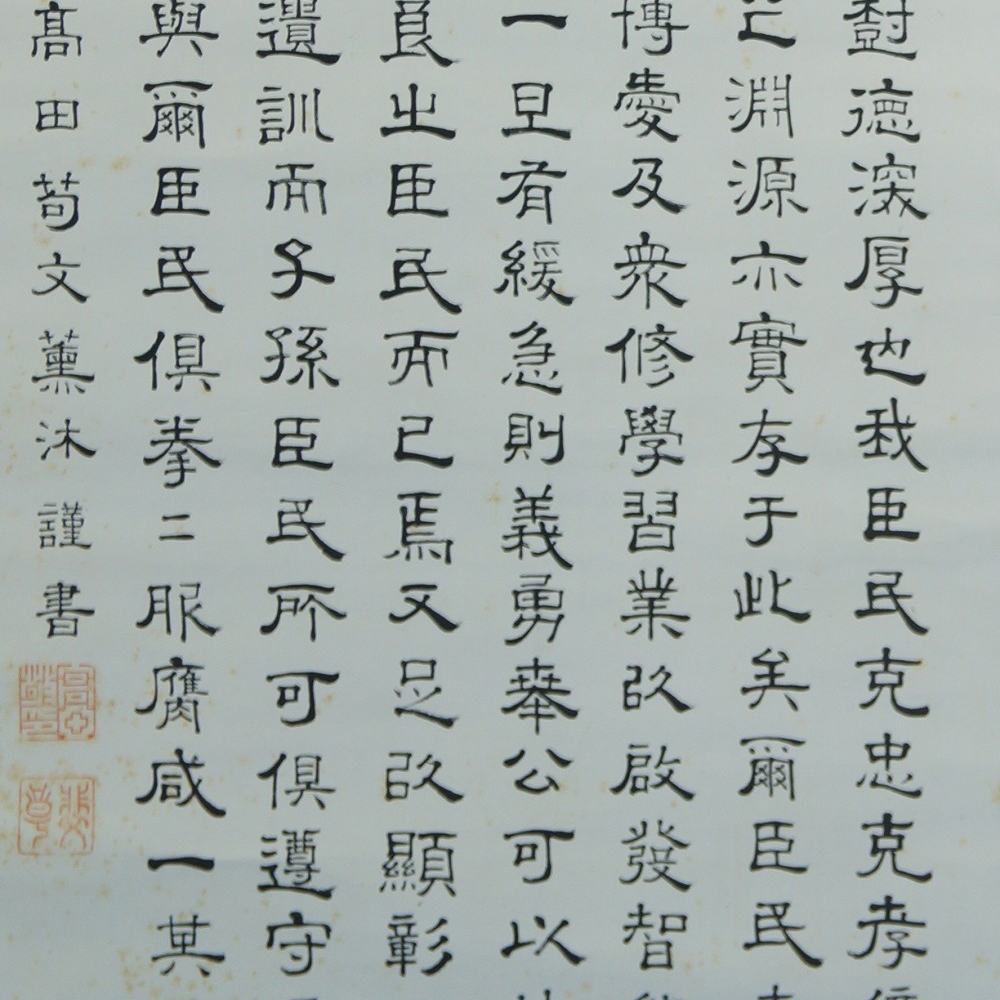 樹德深厚也我臣民克忠克孝
之淵源亦實存于此矣爾臣民
博愛及衆修學習業以啟發智
一旦有緩急則義勇奉公可以
良之臣民而已焉又足以顯彰
遺訓而子孫臣民所可俱遵守
與爾臣民俱拳二服膺咸一其
髙田苟文薰沐謹書